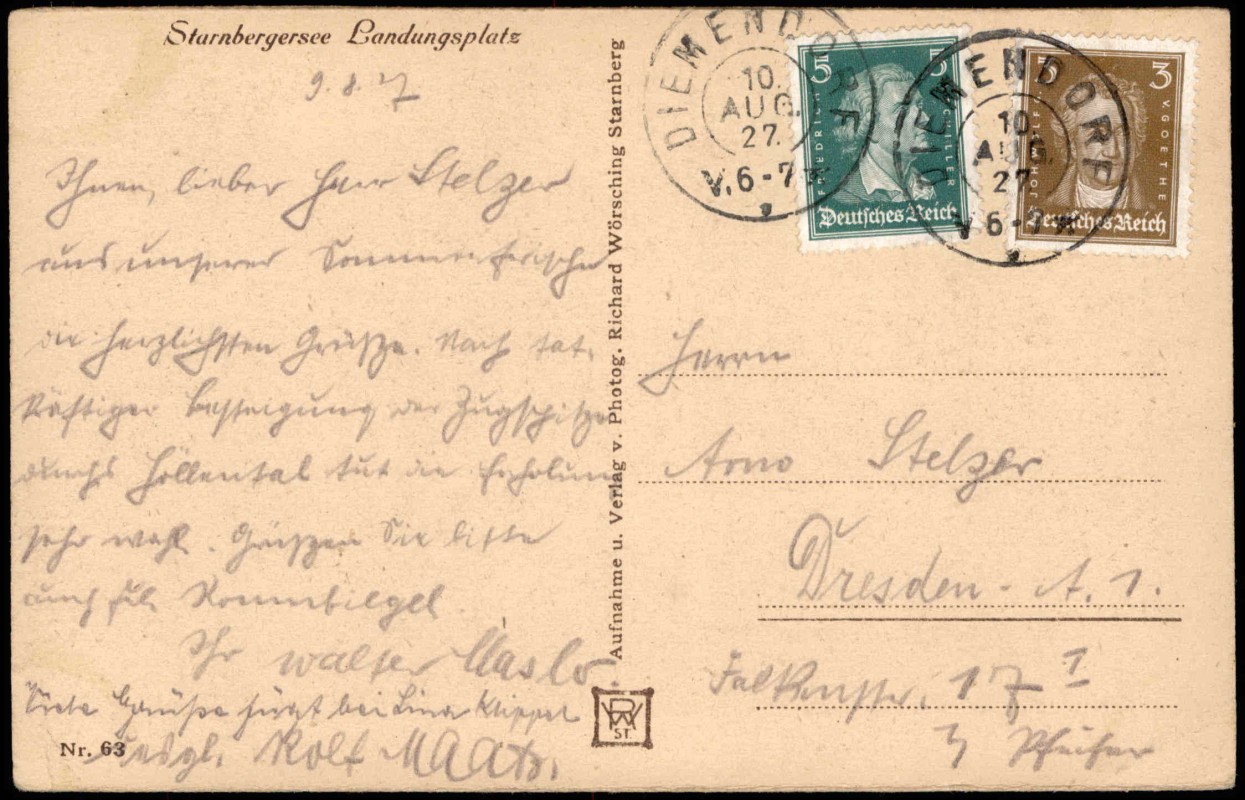 Starnbergersee Landungsplatz
9.8.27
Ihnen, lieber Herr Stelzer
aus unserer Sommerfrische
die herzlichsten Grüsze. Nach tat-
kräftiger Besteigung der Zugspitze
durchs Höllental tut die Erholung
sehr wohl. Grüszen Sie bitte
auch Frl.
Ihr Walter
Viele Grüße fügt bei Lina Klippel
desgl. Rolf
Nr. 63
Aufnahme u. Verlag v. Photog. Richard Wörsching Starnberg
RW
ST.
DIEMENDORF
10.
AUG.
27.
V.6-7
5 5
FRIEDRICH SCHILLER
Deutsches Reich
DIEMENDORF
10.
AUG.
27
V 6-7
3 3
JOH. WOLFG. V GOETHE
Deutsches Reich
Herrn
Arno Stelzer
Dresden-A. 1.
Falkenstr. 17 I
b/ Pfeifer